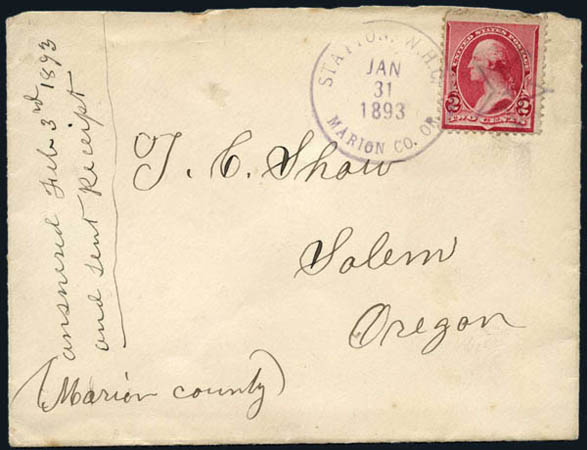 answered Feb 3rd 1893
and sent Receipt
STAYTON,
JAN
31
1893
MARION CO. OR.
UNITED STATES POSTAGE
2 2
TWO CENTS
T. C. Shaw
Salem
Oregon
(Marion county)